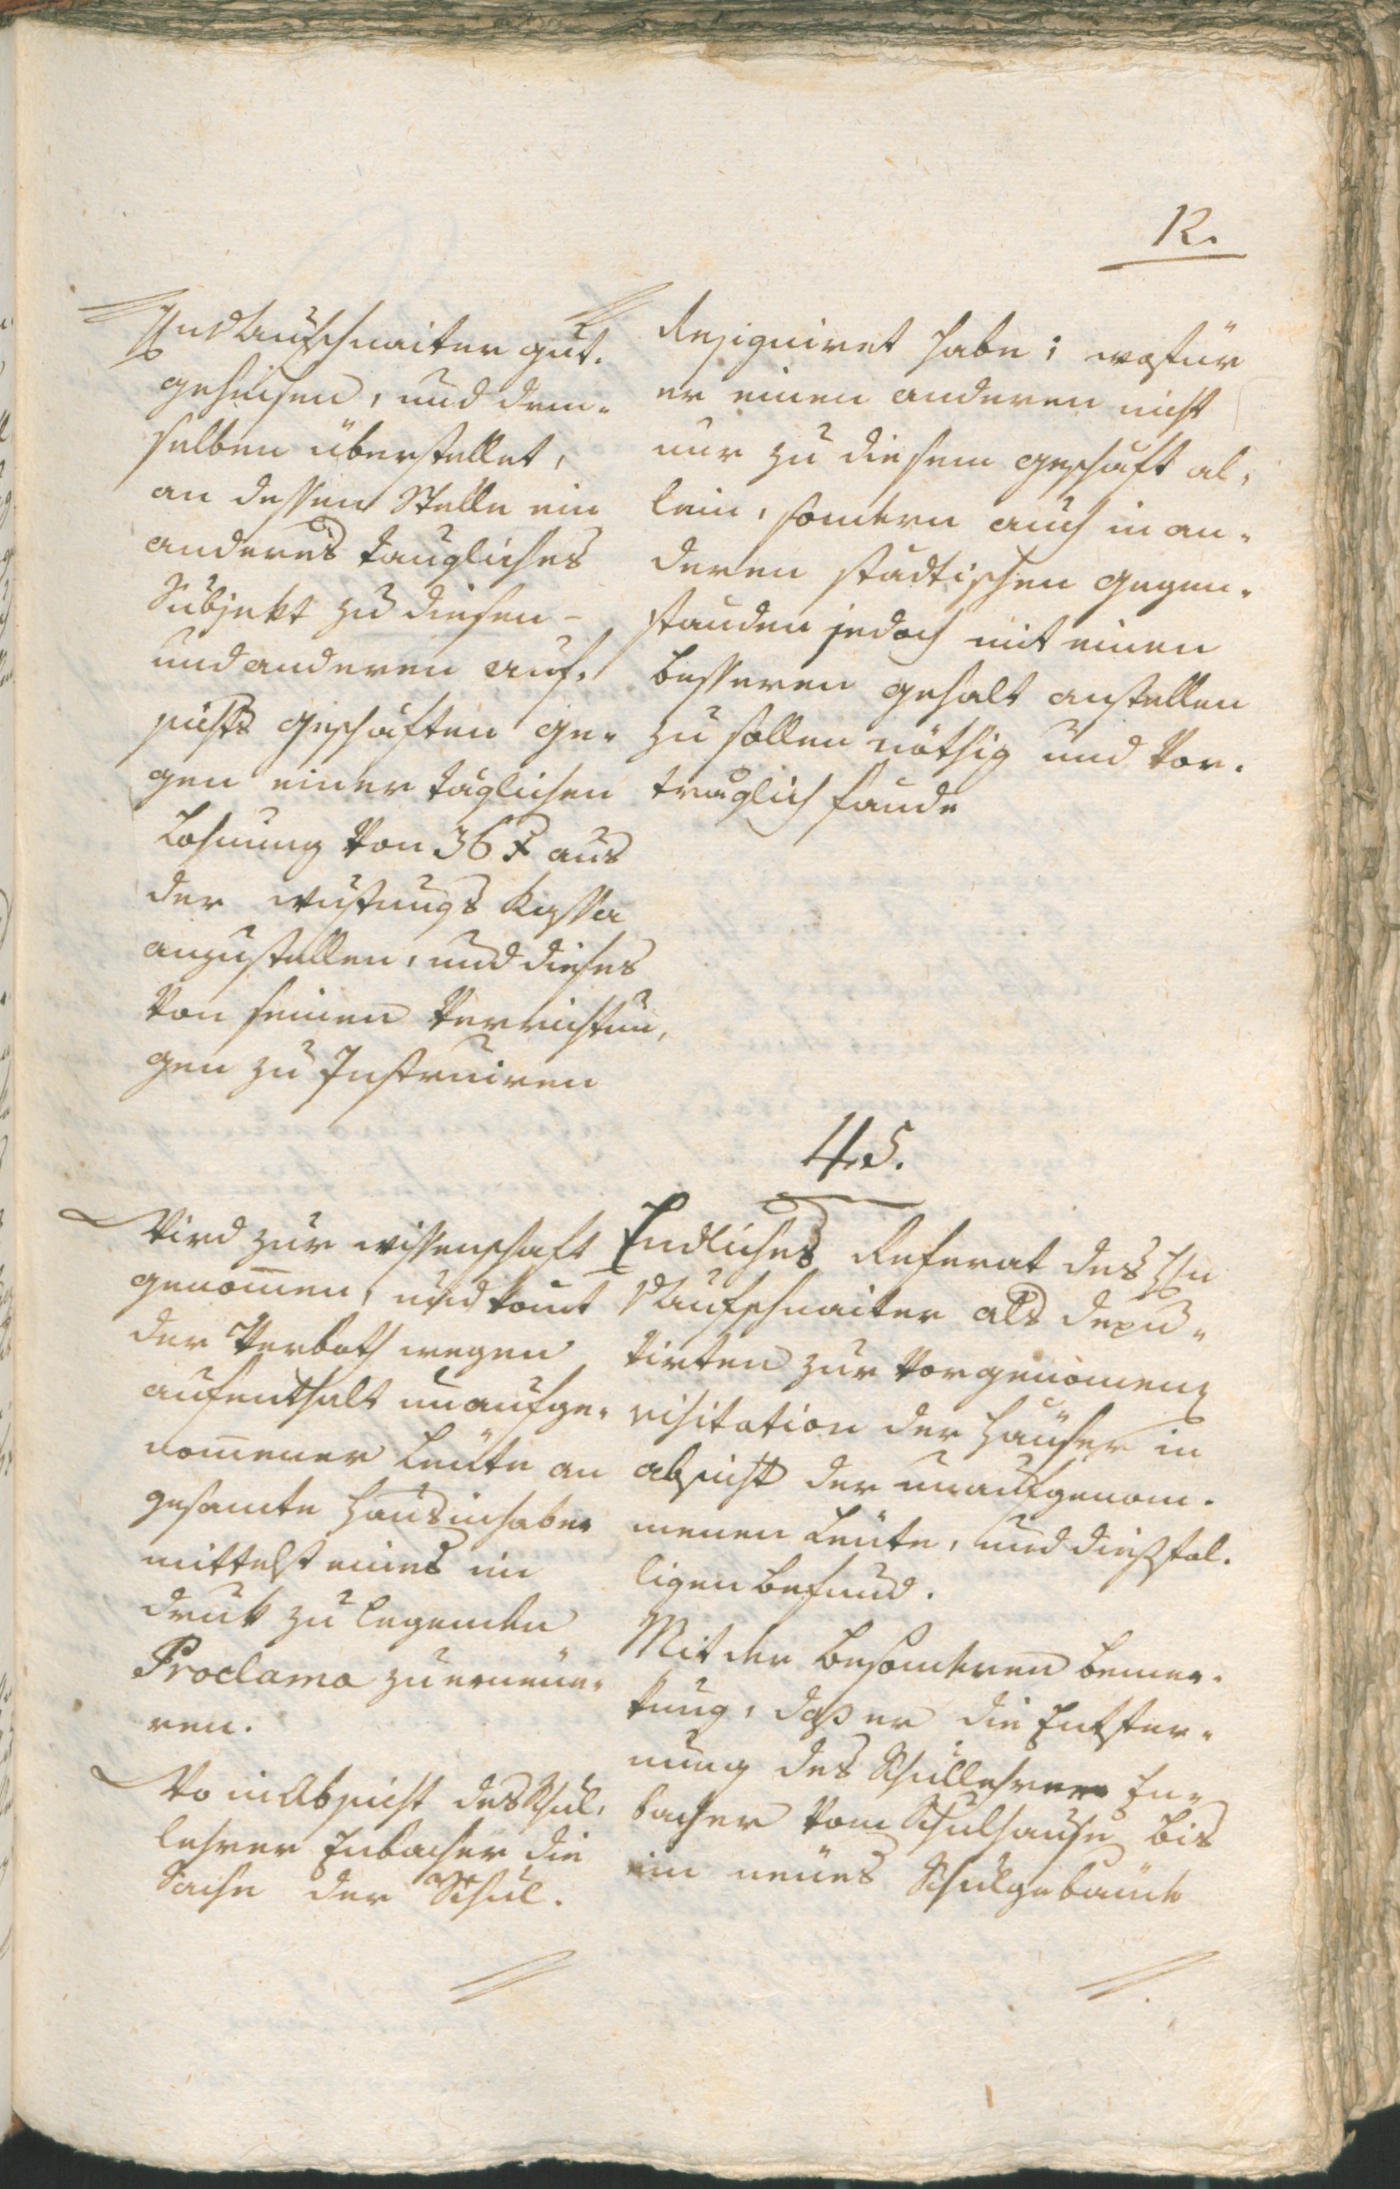 12.
Hn v Aufschnaiter gut¬
geheisen, und dem¬
selben überstellet,
an dessen Stelle ein
anderes taugliches
Subjekt zu diesen -
und anderen auf¬
sichts geschäften ge¬
gen einer täglichen
Lohnung von 36 x aus
der wustungs Kassa
anzustellen, und dieses
von seinen Verrichtun¬
gen zu Instruiren
Resigniret habe; wofür
er einen anderen nicht
nur zu diesem geschäft al¬
lein, sondern auch in an¬
deren städtischen gegen¬
ständen jedoch mit einen
besseren gehalt anstellen
zu sollen nöthig und vor¬
träglich fände
45.
Wird zur wissenschaft
genom̅en, und komt
der Verboth wegen
aufenthalt unaufge¬
nom̅ener Leüte an
gesamte Hausinhaber
mittelst eines in
druk zu legenden
Proclama zu erneüe¬
ren.
Wo in Absicht des Schul¬
lehrer Enbacher die
Sache der Schul¬
Endliches Referat des Hn
v Aufschnaiter als depu¬
tirten zur vorgenomenen
visitation der Häuser in
absicht der unaufgenom¬
menen Leüte, und diesfäl¬
ligen befund.
Mit der besonderen bemer¬
kung, daß er die Entfer¬
nung des Schullehrer En¬
bacher vom Schulhause bis
ein neües Schulgebäude